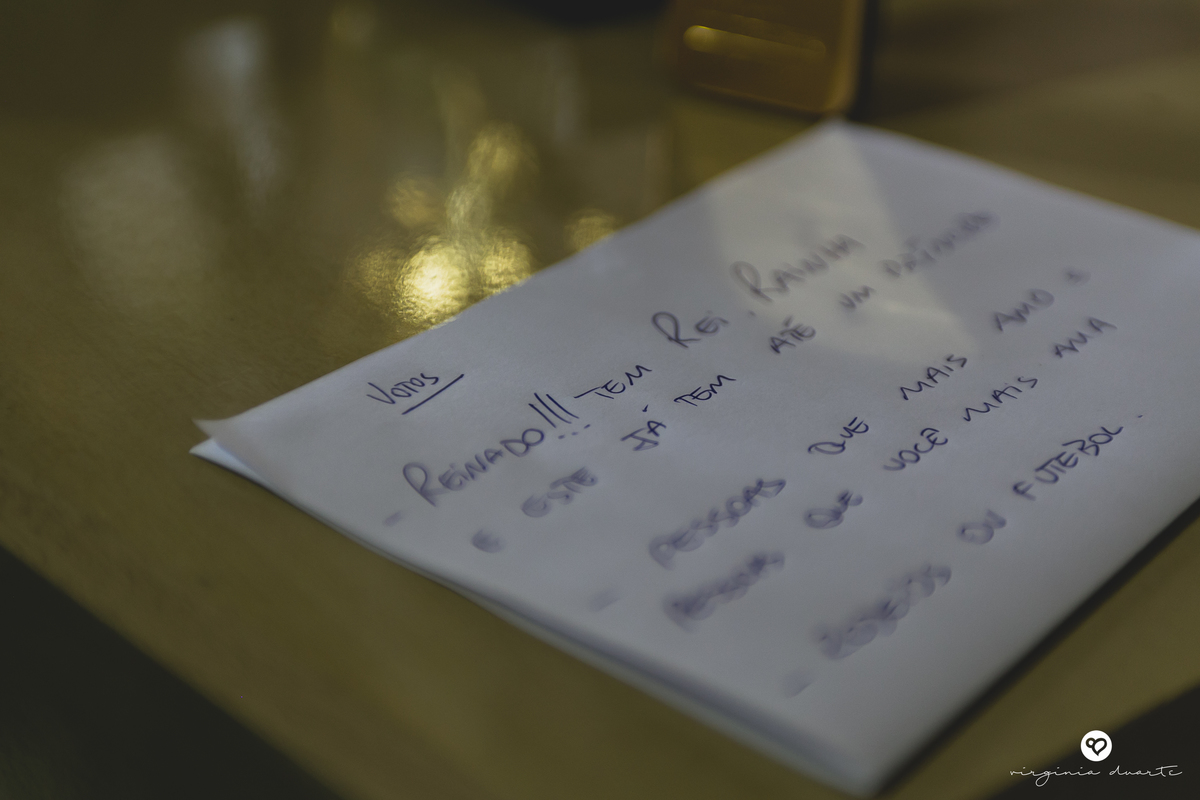 VOTOS
- REINADO!!! TEM REI. RAINHA
E ESTE JÁ TEM ATÉ UM
- PESSOAS QUE MAIS AMO E
PESSOA QUE VOCÊ MAIS AMA
- OU FUTEBOL.
virginia duarte